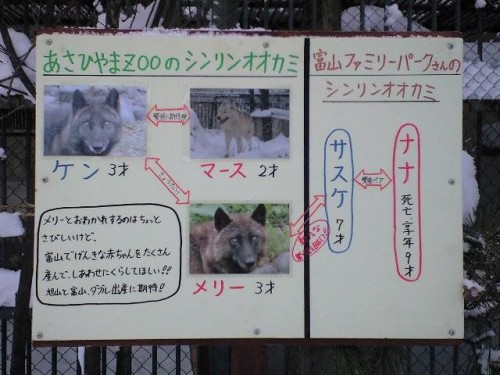 あさひやまZOOのシンリンオオカミ
ケン 3才
マース 2才
メリー 3才
メリーとおわかれするのはちょっと
さびしいけど、
富山でげんきな赤ちゃんをたくさん
産んで、しあわせにくらしてほしい!!
旭山と富山、ダブル出産に期待!
富山ファミリーパークさんの
シンリンオオカミ
サスケ 7才
ナナ 死亡・享年9才